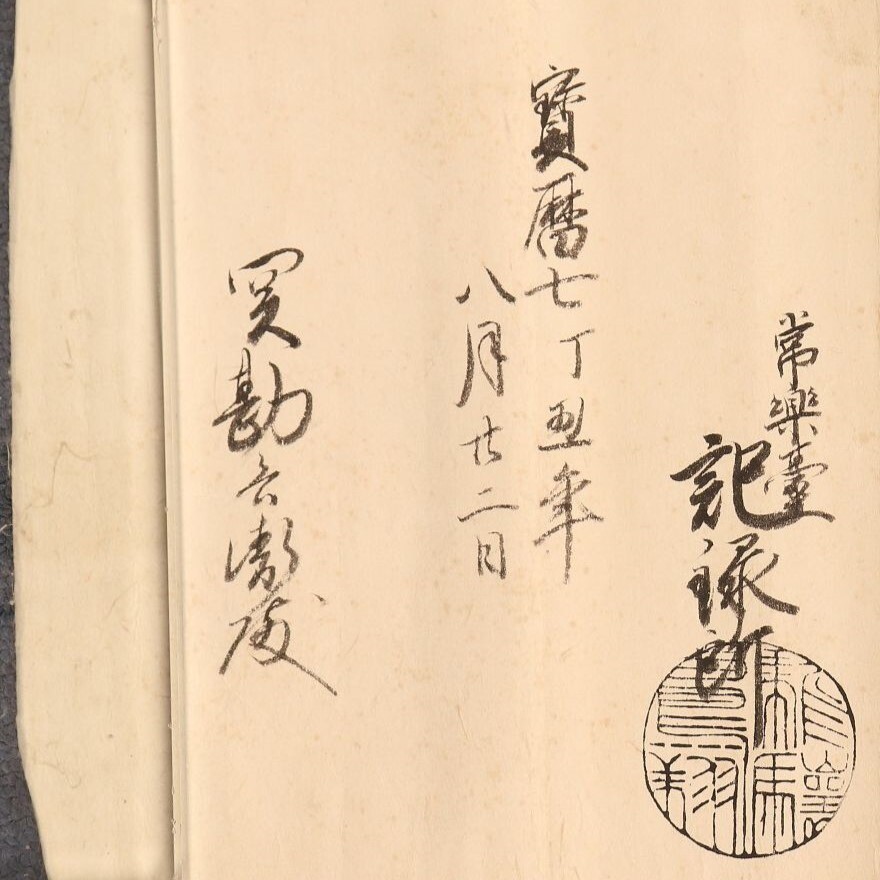 常樂臺
記録所
寳暦七丁丑年
八月廿二日
関勘兵衛殿